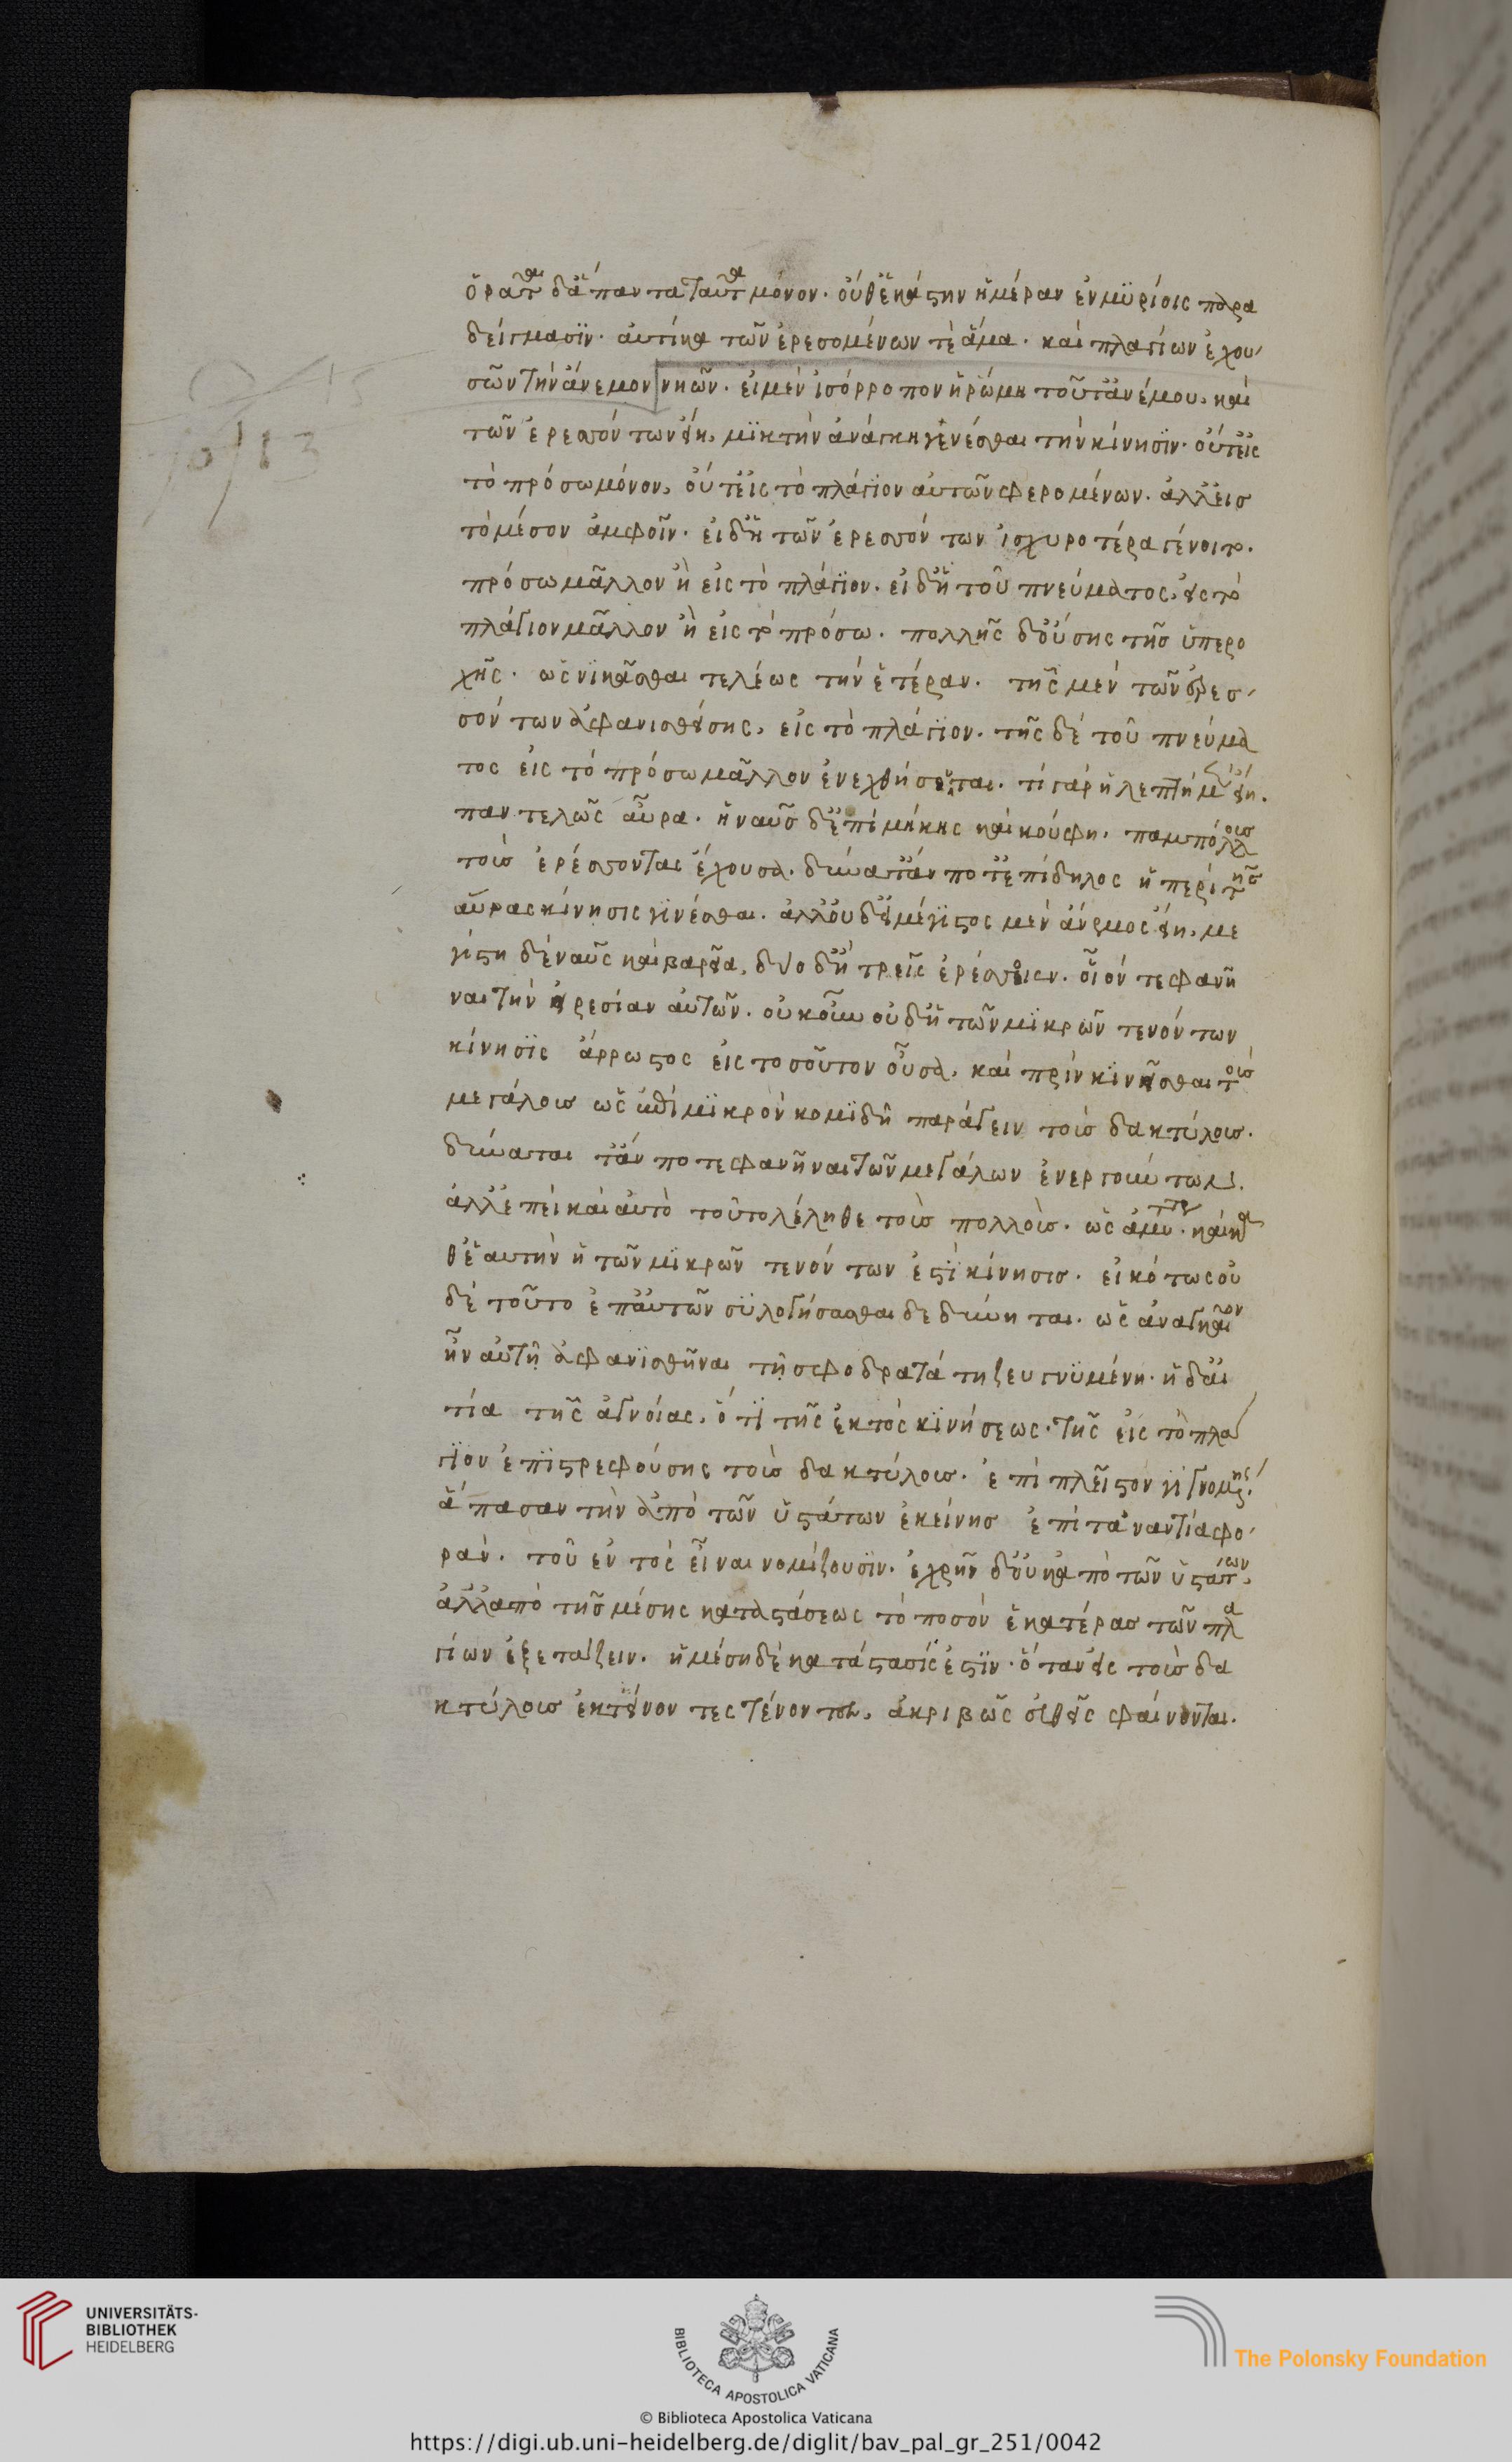 ὁρᾶται δἅπαντα ταῦτα μόνον. οὐθἑκάστην ἡμέραν ἐν μϋρίοις παρα
δείγμασϊν. αὐτίκα τῶν ἐρεσσομένων τὲ ἅμα. καὶ πλαγίων ἐχου
σῶν τὴν ἄνεμον νηῶν. εἰ μὲν ἰσόρροπον ἡ ῥώμη τοῦ τἀνέμου, καὶ
τῶν ἐρεσσόντων εἴη, μϊκτὴν ἀνάγκη γενέσθαι τὴν κίνησϊν. οὔτεἰς
τὸ πρόσω μόνον, οὔτεἰς τὸ πλάγϊον αὐτῶν φερομένων. ἀλλεἰσ
τὸ μέσον ἀμφοῖν. εἰ δἡ τῶν ἐρεσσόντων ἰσχυροτέρα γένοιτο.
πρόσω μᾶλλον ἢ εἰς τὸ πλάγϊον. εἰ δἡ τοῦ πνεύματος, εἰς τὸ
πλάγιον μᾶλλον ἢ εἰς τὸ πρόσω. πολλῆς δοὔσης τῆσ ὑπερο
χῆς. ὡς νϊκᾶσθαι τελέως τὴν ἑτέραν. τῆς μὲν τῶν ἐρεσ
σόντων ἀφανισθείσης, εἰς τὸ πλάγϊον. τῆς δὲ τοῦ πνεύμα
τος εἰς τὸ πρόσω μᾶλλον ἐνεχθήσεται. τί γὰρ ἡ λεπτὴ μὲν εἴη.
παντελῶς αὖρα. ἡ ναῦσ δἐπιμήκης καὶ κούφη. παμπόλλοισ
τοὺσ ἐρέσσοντας ἔχουσα. δύναιτἄν ποτἐπίδηλος ἡ περὶ τῆσ
αὔρας κίνησις γϊνέσθαι. ἀλλοὐδεἰ μέγϊστος μὲν ἄνεμος εἴη, με
γίστη δὲ ναῦς καὶ βαρεῖα, δύο δἢ τρεῖς ἐρέσσοιεν. οἷόν τε φανῆ
ναι τὴν εἰρεσίαν αὐτῶν. οὐκοῦν οὐδἡ τῶν μϊκρῶν τενόντων
κίνησϊς ἄρρωστος εἰς τοσοῦτον οὖσα, καὶ πρὶν κϊνεῖσθαι τοὺσ
μεγάλους ὡς ἐπὶ μϊκρὸν κομϊδῆ παράγειν τοὺσ δακτύλουσ.
δύναται τἄν ποτε φανῆναι τῶν μεγάλων ἐνεργούντων.
ἀλλἐπεὶ καὶ αὐτὸ τοῦτο λέληθε τοὺσ πολλοὺσ.
θἑαυτὴν ἡ τῶν μϊκρῶν τενόντων ἐστὶ κίνησισ. εἰκότως οὐ
δὲ τοῦτο ἐπαὐτῶν σϋλογήσασθαι δεδύνηται. ὡς ἀναγκαῖον
ἦν αὐτῇ ἀφανϊσθῆναι τῇ σφοδροτάτη ζευγνϋμένη. ἡ δαἰ
τία τῆς ἀγνοίας, ὅτϊ τῆς ἐκτὸς κϊνήσεως. τῆς εἰς τὸ πλά
γϊον ἐπϊστρεφούσης τοὺσ δακτύλουσ. ἐπὶ πλεῖστον γϊγνομένης.
ἅπασαν τὴν ἀπὸ τῶν ὑστάτων ἐκείνησ ἐπὶ τἀναντία φο
ράν. τοῦ ἐντὸς εἶναι νομίζουσϊν. ἐχρῆν δοὐκ ἀπὸ τῶν ὑστάτων,
ἀλλἀπὸ τῆσ μέσης καταστάσεως τὸ ποσὸν ἑκατέρασ τῶν πλα
γίων ἐξετάζειν. ἡ μέση δὲ κατάστασίς ἐστϊν. ὅταν εἰς τοὺσ δα
κτύλουσ ἐκτείνοντες τένοντες, ἀκριβῶς εὐθεῖς φαίνονται.
UNIVERSITÄTS-
BIBLIOTHEK
HEIDELBERG
BIBLIOTECA APOSTOLICA VATICANA
The Polonsky Foundation
© Biblioteca Apostolica Vaticana
https://digi.ub.uni-heidelberg.de/diglit/bav_pal_gr_251/0042